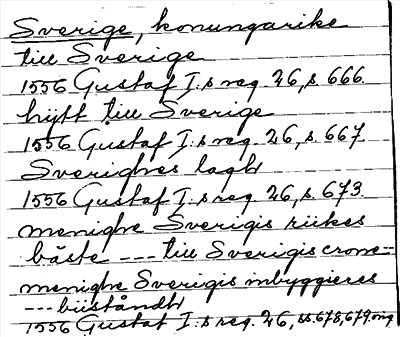 Sverige, konungarike
till Sverige
1556 Gustaf I:s reg. 26, s. 666.
hijtt till Sverige
1556 Gustaf I:s reg. 26, s. 667
Sverighes lagh
1556 Gustaf I:s reg. 26, s. 673.
menighe Sverigis riikes
bäste --- till Sverigis crone=
menighe Sverigis inbyggieres
--- biiståndh
1556 Gustaf I:s reg. 26, ss. 678, 679 orig